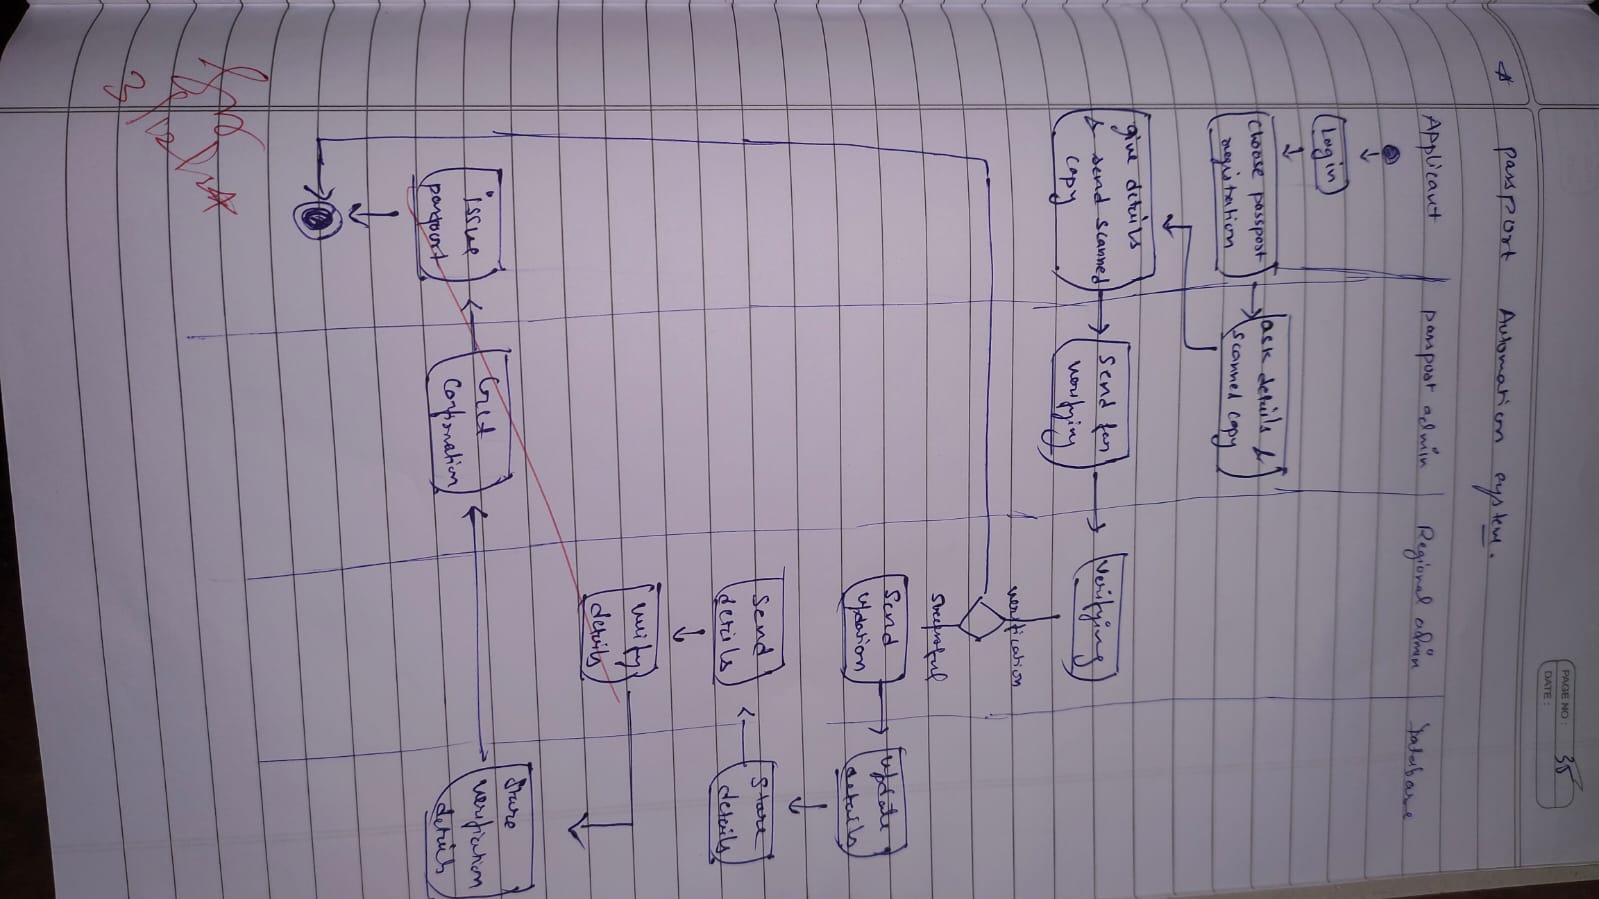 PAGE NO: 35
DATE:
passport Automation system.
Applicant passport admin Regional admin Database
Login
choose passport
registration
ask details &
scanned copy
give details
& send scanned
copy
Send for
verifying
Verifying
verification
Successful
Send
updation
update
details
Store
details
Send
details
verify
details
Store
verification
details
Get
confirmation
issue
passport